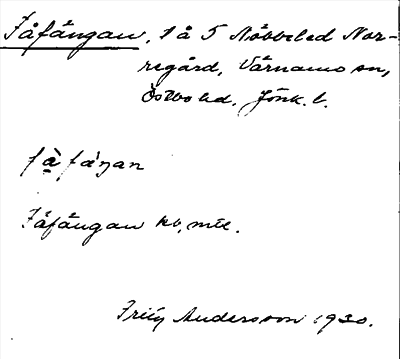 Fåfångan, 1 å 5 Nöbbeled Nor-
regård, Värnamo sn,
Östbo hd. Jönk. l.
fà̱fáŋan
Fåfångan kv, mtl.
Frith Andersson 1930.